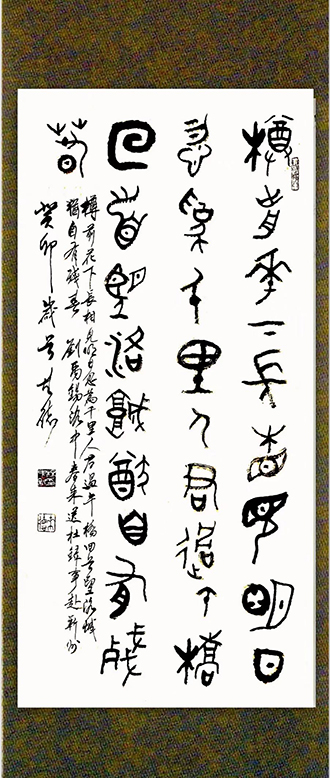 樽前花下長相見明日
忽為千里人君過午橋
回首望洛城猶自有殘
春
樽前花下長相見明日忽為千里人君過午橋回首望洛城
猶自有殘春 劉禹錫洛中春末送杜錄事赴蘄州
癸卯歲